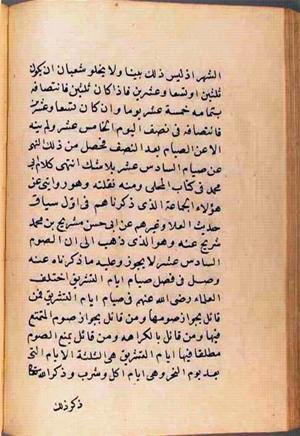 الشهر اذ ليس ذلك بينا ولا يخلو شعبان ان يكون
ثلثين او تسعا وعشرين فاذا كان ثلثين فانتصافه
بتمامه خمسة عشر يوما وان كان تسعا وعشرين
فانتصافه في نصف اليوم الخامس عشر ولم ينه
الا عن الصيام بعد النصف فحصل من ذلك النهي
عن صيام السادس عشر بلا شك انتهى كلام ابي
محمد في كتاب المحلى ومنه نقلته وهو روايتي عن
هؤلاء الجماعة الذي ذكرناهم في اول سياق
حديث العلا وغيرهم عن ابي حسن شريح بن محمد
شريح عنه وهو الذي ذهب الى ان الصوم
السادس عشر لا يجوز وعليه ما ذكرناه عنه
وصل في فصل صيام ايام التشريق اختلف
العلماء رضي الله عنهم في صيام ايام التشريق فمن
قائل يجواز صومها ومن قائل بجواز صوم المتمتع
فيها ومن قائل بالكراهه ومن قائل بمنع الصوم
مطلقا فيها ايام التشريق هي الثلثة الايام التي
بعد يوم النحر وهي ايام اكل وشرب وذكر الله
ذكر ذلك